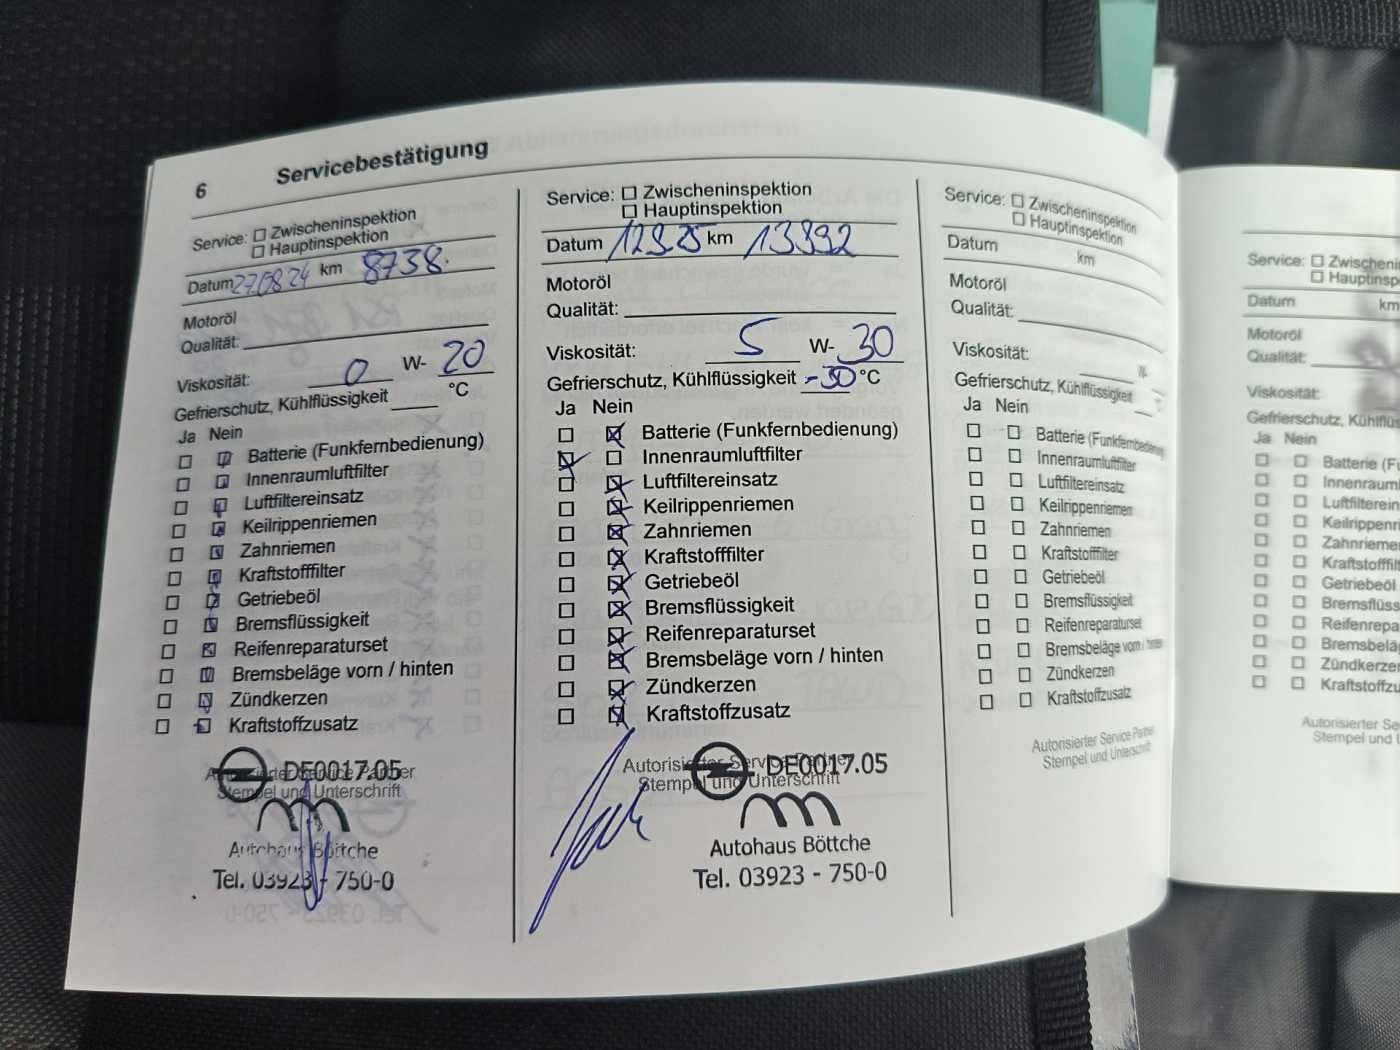 6 Servicebestätigung
Service: Zwischeninspektion
Hauptinspektion
Datum 27.08.24 km 8738.
Motoröl
Qualität:
Viskosität: 0 W- 20
Gefrierschutz, Kühlflüssigkeit °C
Ja Nein
Batterie (Funkfernbedienung)
Innenraumluftfilter
Luftfiltereinsatz
Keilrippenriemen
Zahnriemen
Kraftstofffilter
Getriebeöl
Bremsflüssigkeit
Reifenreparaturset
Bremsbeläge vorn / hinten
Zündkerzen
Kraftstoffzusatz
Autorisierter Service Partner
Stempel und Unterschrift
DE0017.05
Autohaus Böttche
Tel. 03923 - 750-0
Service: Zwischeninspektion
Hauptinspektion
Datum 12.9.25 km 13392
Motoröl
Qualität:
Viskosität: 5 W- 30
Gefrierschutz, Kühlflüssigkeit -30 °C
Ja Nein
Batterie (Funkfernbedienung)
Innenraumluftfilter
Luftfiltereinsatz
Keilrippenriemen
Zahnriemen
Kraftstofffilter
Getriebeöl
Bremsflüssigkeit
Reifenreparaturset
Bremsbeläge vorn / hinten
Zündkerzen
Kraftstoffzusatz
Autorisierter Service Partner
Stempel und Unterschrift
DE0017.05
Autohaus Böttche
Tel. 03923 - 750-0
Service: Zwischeninspektion
Hauptinspektion
Datum km
Motoröl
Qualität:
Viskosität: W-
Gefrierschutz, Kühlflüssigkeit °C
Ja Nein
Batterie (Funkfernbedienung)
Innenraumluftfilter
Luftfiltereinsatz
Keilrippenriemen
Zahnriemen
Kraftstofffilter
Getriebeöl
Bremsflüssigkeit
Reifenreparaturset
Bremsbeläge vorn / hinten
Zündkerzen
Kraftstoffzusatz
Autorisierter Service Partner
Stempel und Unterschrift
Service: Zwischenin
Hauptinsp
Datum km
Motoröl
Qualität:
Viskosität:
Gefrierschutz, Kühlflüs
Ja Nein
Batterie (F
Innenraum
Luftfilterein
Keilrippenri
Zahnriemen
Kraftstofffilt
Getriebeöl
Bremsflüss
Reifenrepa
Bremsbelä
Zündkerze
Kraftstoffzu
Autorisierter Se
Stempel und U